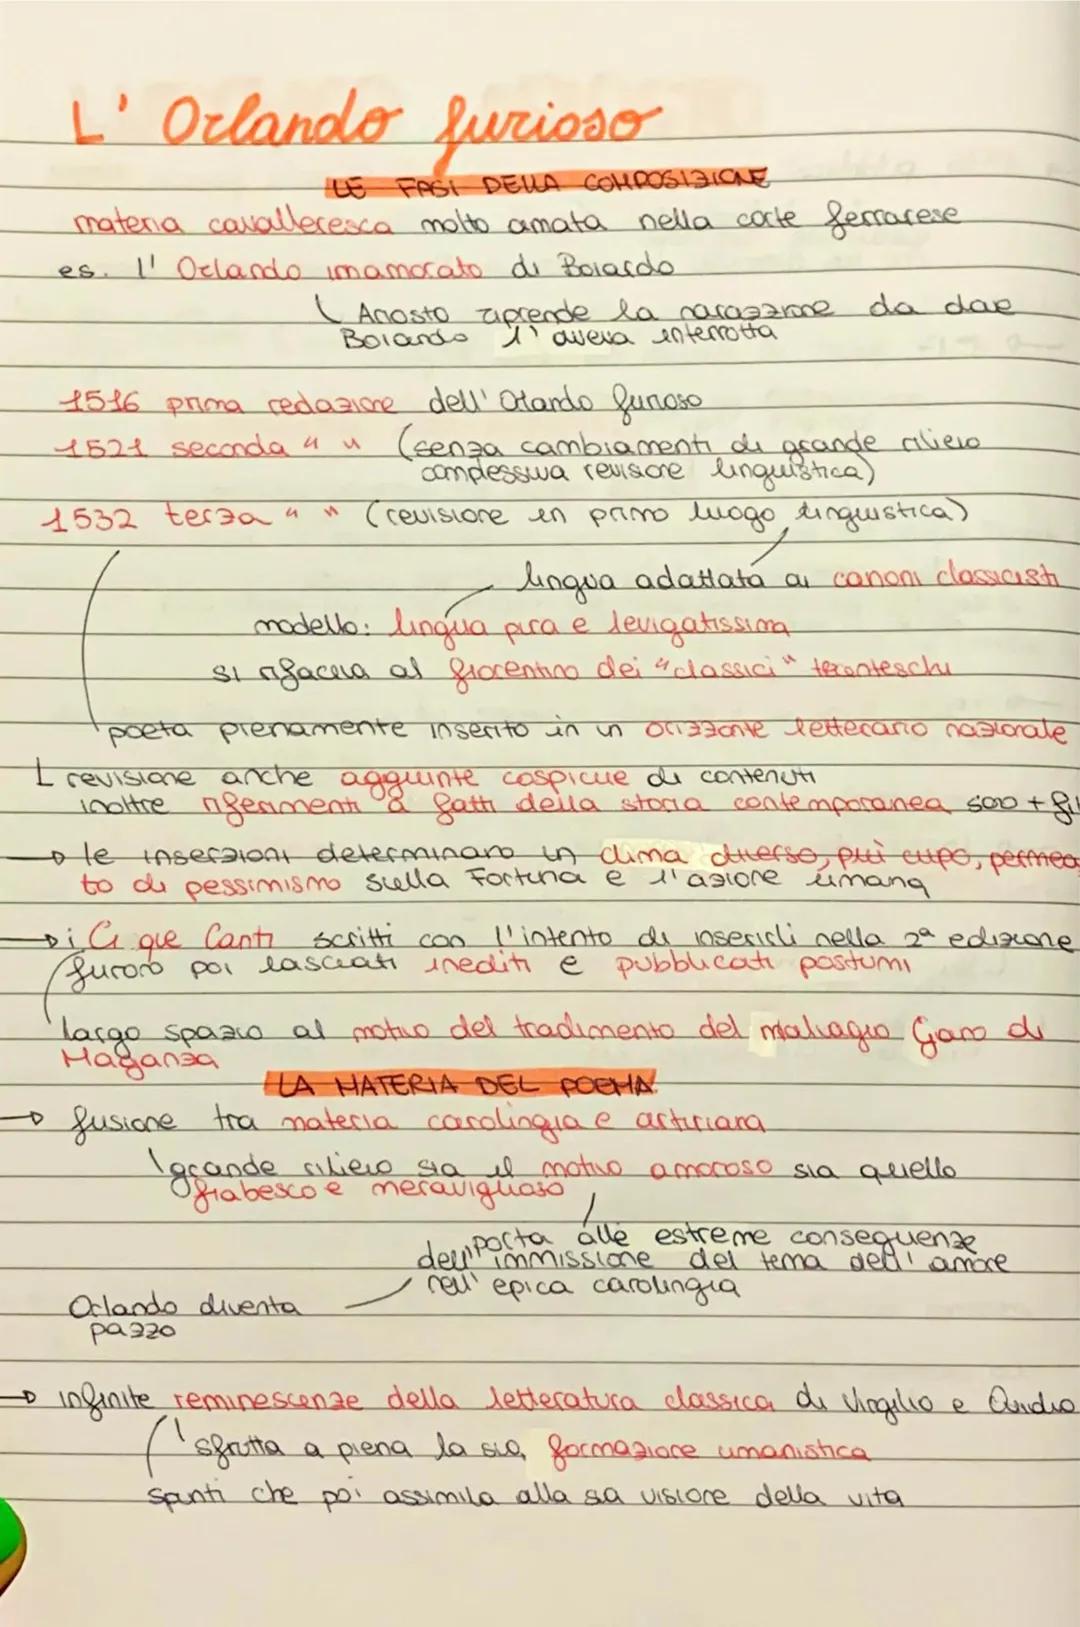 L' Orlando furioso
LE FASI DELLA COMPOSIZIONE
materia cavalleresca molto amata nella corte ferrarese
es. l' Orlando innamorato di Boiardo
Ariosto riprende la narrazione da dove
Boiardo l' aveva interrotta
1516 prima redazione dell' Orlando furioso
1521 seconda " " (senza cambiamenti di grande rilievo
complessiva revisione linguistica)
1532 terza " " (revisione in primo luogo linguistica)
lingua adattata ai canoni classicisti
modello: lingua pura e levigatissima
si rifaceva al fiorentino dei "classici" trecenteschi
poeta pienamente inserito in un orizzonte letterario nazionale
revisione anche aggiunte cospicue di contenuti
inoltre riferimenti a fatti della storia contemporanea 500 +
→ le inserzioni determinano un clima diverso, più cupo, permea
to di pessimismo sulla Fortuna e l'azione umana
→ i Cinque Canti scritti con l'intento di inserirli nella 2ª edizione
furono poi lasciati inediti e pubblicati postumi
largo spazio al motivo del tradimento del malvagio Gano di
Maganza
LA MATERIA DEL POEMA
→ fusione tra materia carolingia e arturiana
grande rilievo sia il motivo amoroso sia quello
fiabesco e meraviglioso
porta alle estreme conseguenze
dell' immissione del tema dell' amore
nell' epica carolingia
Orlando diventa
pazzo
→ infinite reminescenze della letteratura classica di Virgilio e Ovidio
sfrutta a piena la sua formazione umanistica
spunti che poi assimila alla sua visione della vita